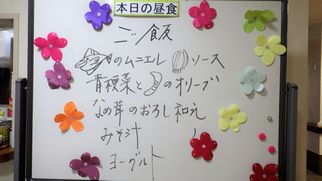 本日の昼食
ご飯
のムニエル ソース
青梗菜と のオリーブ
なめ茸のおろし和え
みそ汁
ヨーグルト